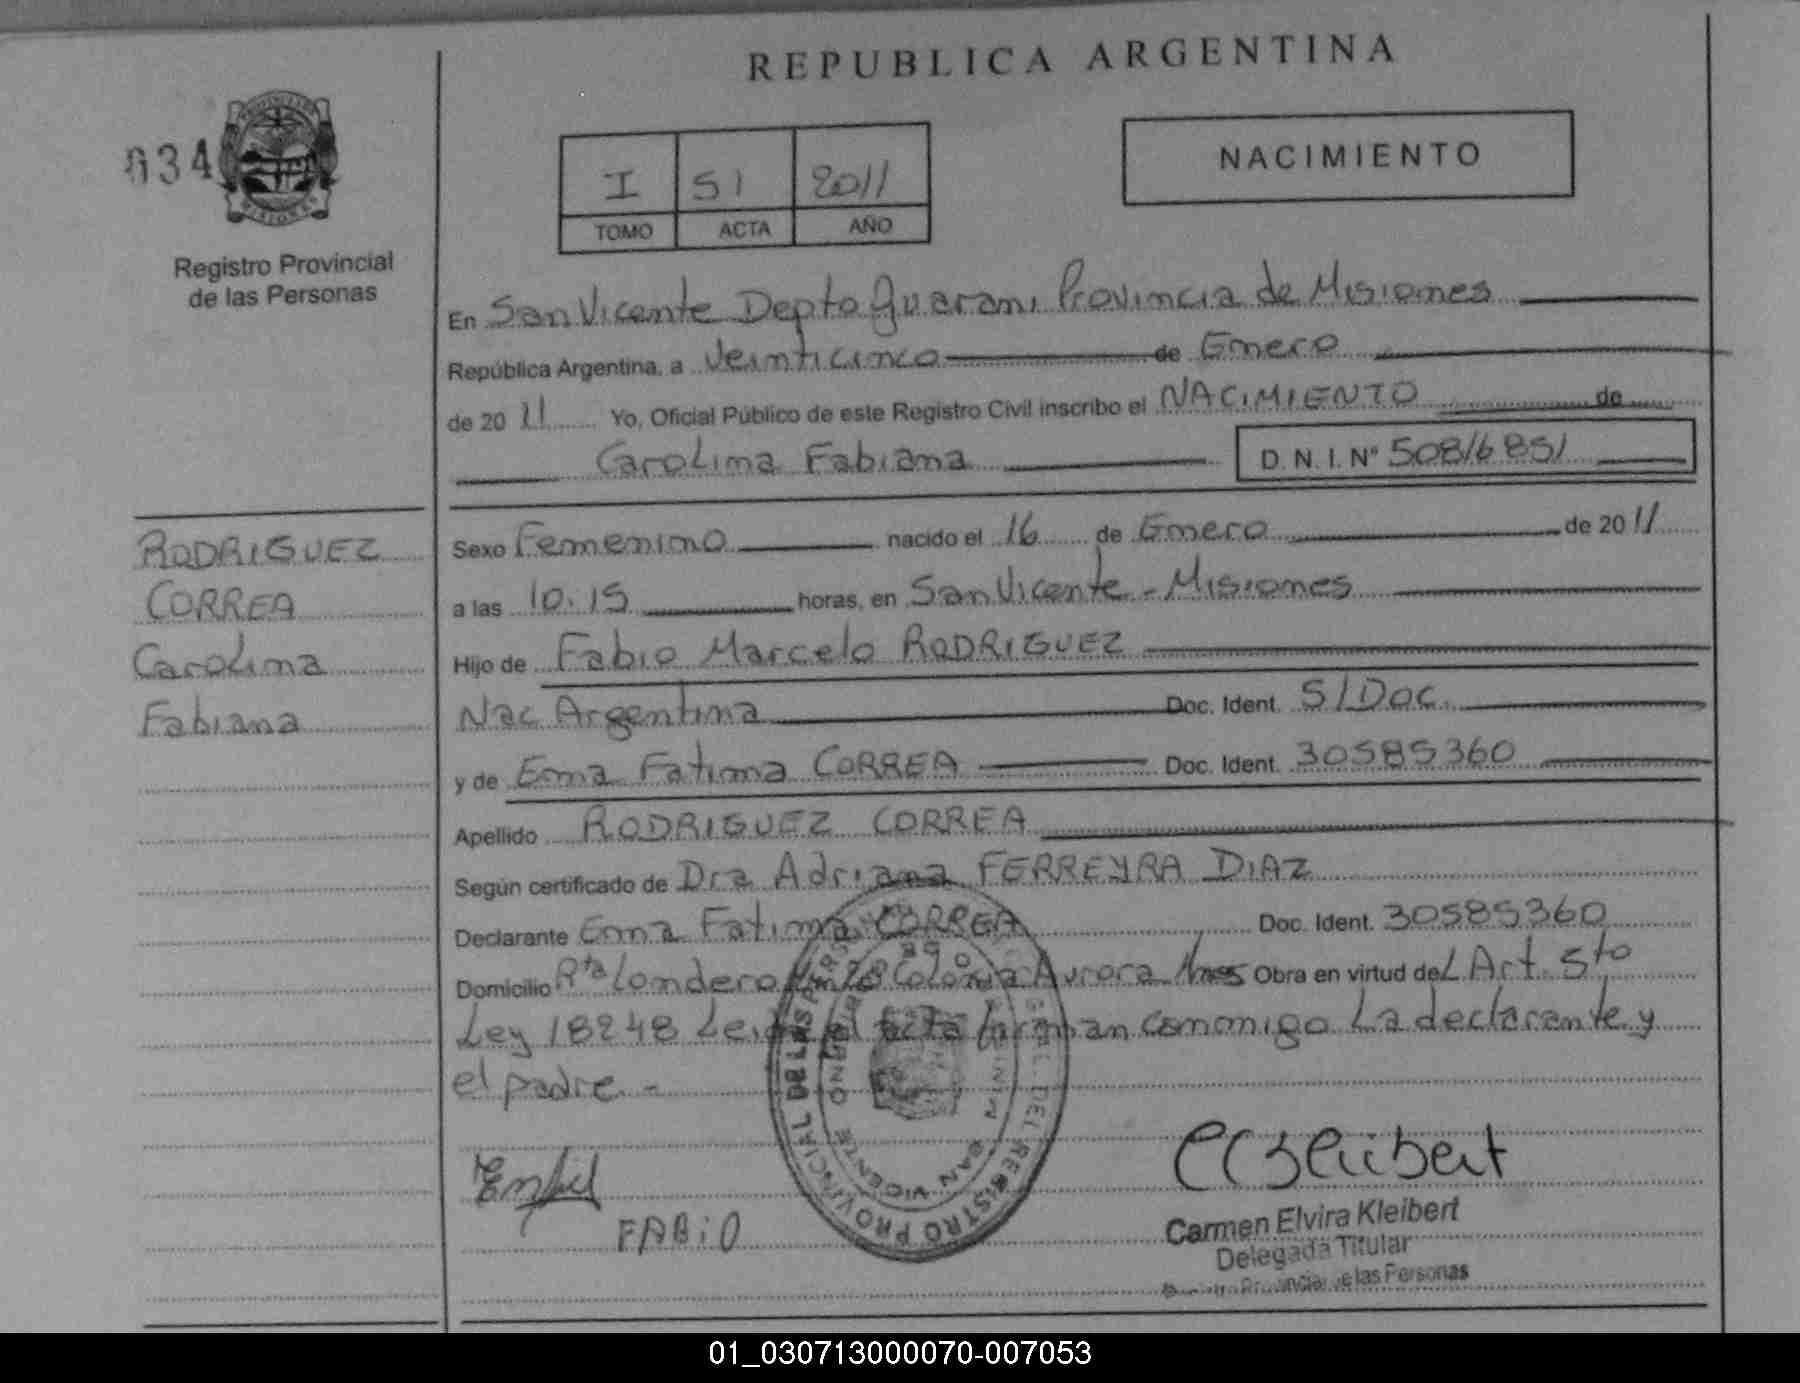 REPUBLICA ARGENTINA
034
PROVINCIA DE
MISIONES
Registro Provincial
de las Personas
I 51 2011
TOMO ACTA AÑO
NACIMIENTO
En San Vicente Depto Guarani Provincia de Misiones
República Argentina, a Veinticinco de Enero
de 2011 Yo, Oficial Público de este Registro Civil inscribo el NACIMIENTO de
Carolina Fabiana D.N.I. Nº 50816851
RODRIGUEZ
CORREA
Carolina
Fabiana
Sexo Femenino nacido el 16 de Enero de 2011
a las 10.15 horas, en San Vicente - Misiones
Hijo de Fabio Marcelo RODRIGUEZ
Nac Argentina Doc. Ident. S/Doc.
y de Ema Fatima CORREA Doc. Ident. 30585360
Apellido RODRIGUEZ CORREA
Según certificado de Dra Adriana FERREYRA DIAZ
Declarante Ema Fatima CORREA Doc. Ident. 30585360
Domicilio Rta Londero Colonia Aurora Mnes Obra en virtud del Art 5to
Ley 18248 Leida el acta firman conmigo La declarante y
el padre -
REGISTRO PROVINCIAL DE LAS PERS
SAN VICENTE
FABiO
Carmen Elvira Kleibert
Delegada Titular
Registro Provincial de las Personas
01_030713000070-007053